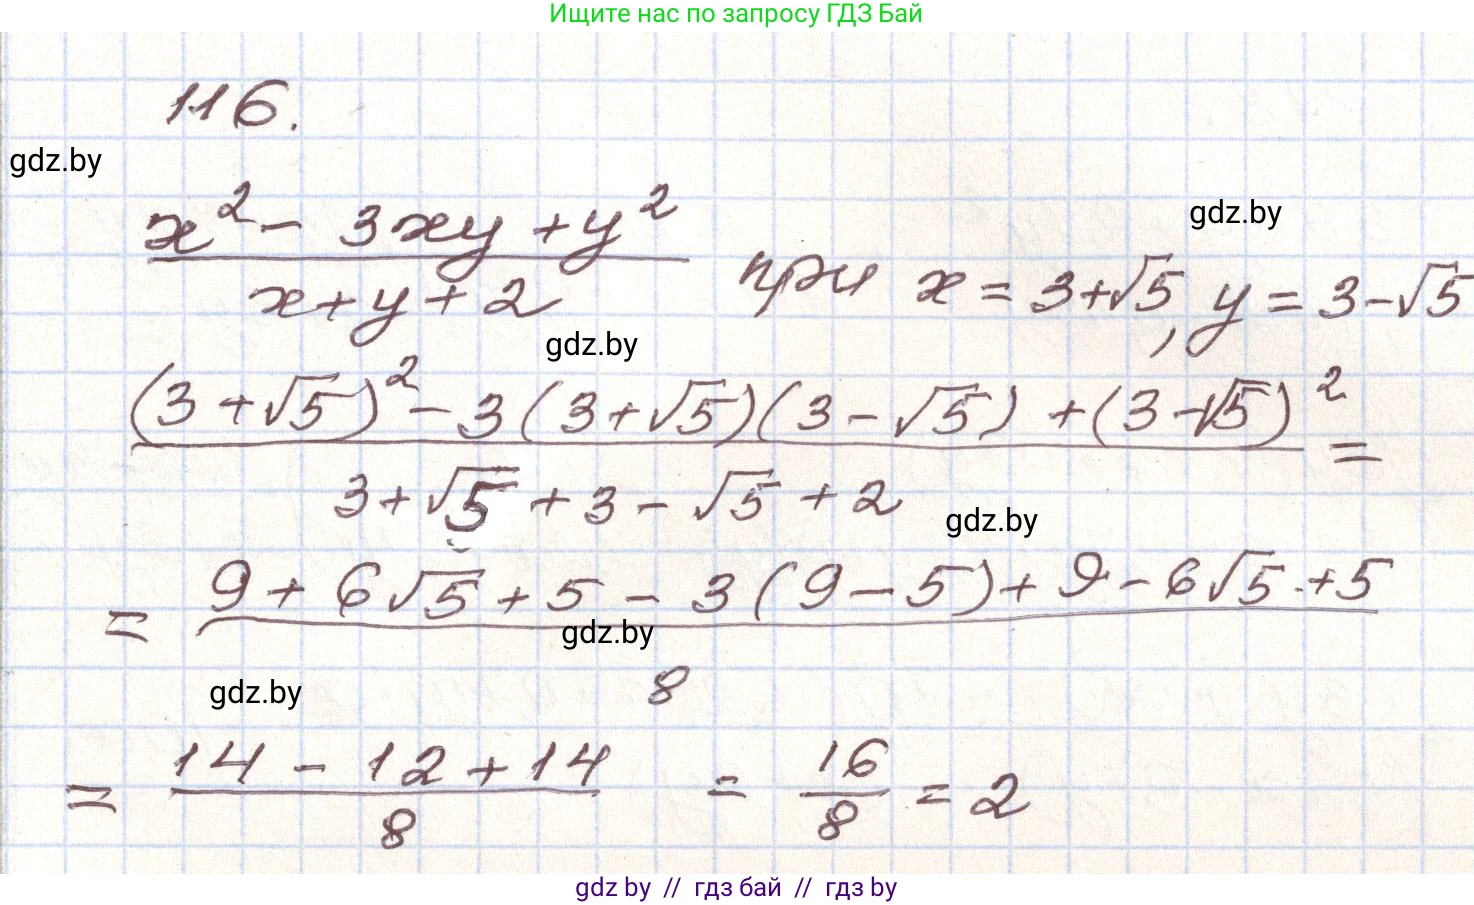 Ищите нас по запросу ГДЗ Бай
116.
gdz.by
gdz.by
x² - 3xy + y² / x + y + 2 при x = 3+√5, y = 3-√5
gdz.by
(3+√5)² - 3(3+√5)(3-√5) + (3-√5)² / 3+√5 + 3-√5 + 2 =
gdz.by
= 9 + 6√5 + 5 - 3(9-5) + 9 - 6√5 + 5 / 8
gdz.by
gdz.by
= 14 - 12 + 14 / 8 = 16 / 8 = 2
gdz by // гдз бай // гдз by